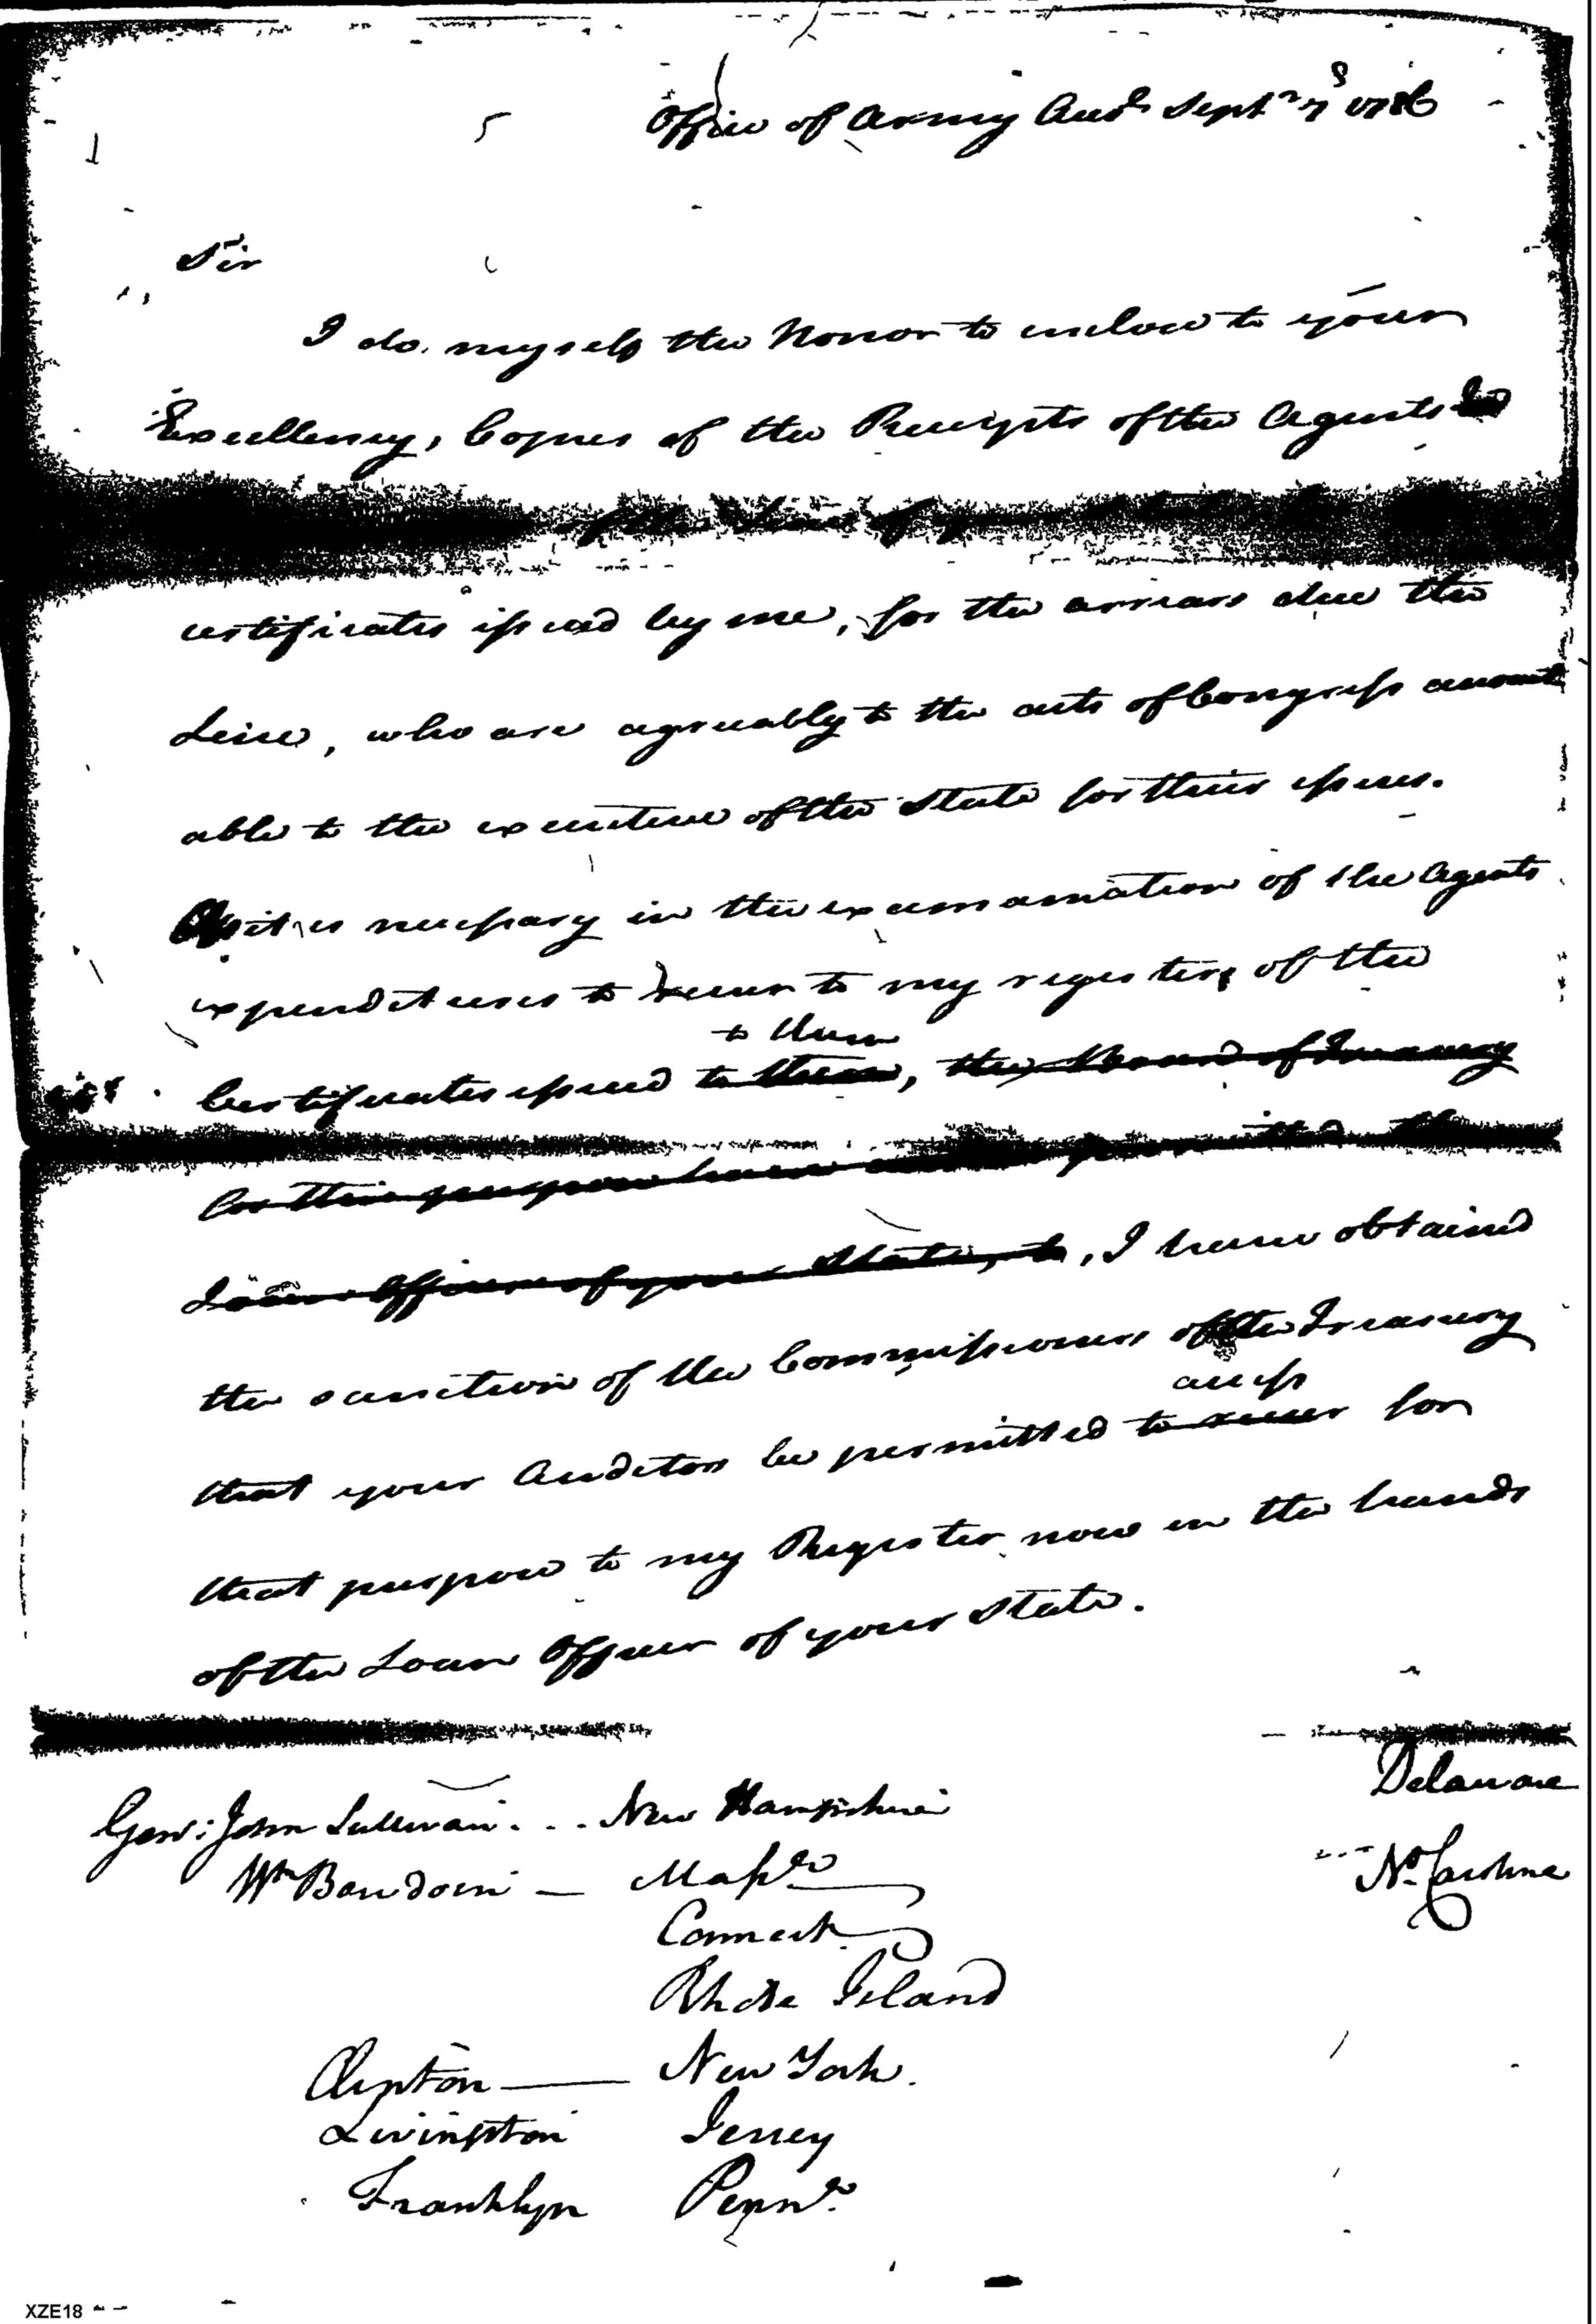 Office of Army Aud.ts Sept.r 7 1786
Sir
I do myself the Honor to inclose to your
Excellency, Copies of the Receipts of the Agents
of the Line of your
certificates issued by me, for the arrears due the
Line, who are agreeably to the acts of Congress account
able to the executive of the State for their issues.
As it is necessary in the examination of the Agents
expenditures to recur to my registers of the
to them
Certificates issued to them, the Board of Treasury
for this purpose have permitted the
Loan Officer of your State, to, I have obtained
the sanction of the Commissioners of the Treasury
access
that your Auditors be permitted to recur for
that purpose to my Register now in the hands
of the Loan Officer of your State.
Delaware
Gen: John Sullivan . . . New Hampshire
Wm Baudoin — Mass.ts
No. Carolina
Connect.
Rhode Island
Clinton — New York.
Livingston Jersey
Franklyn Penn.a
XZE18